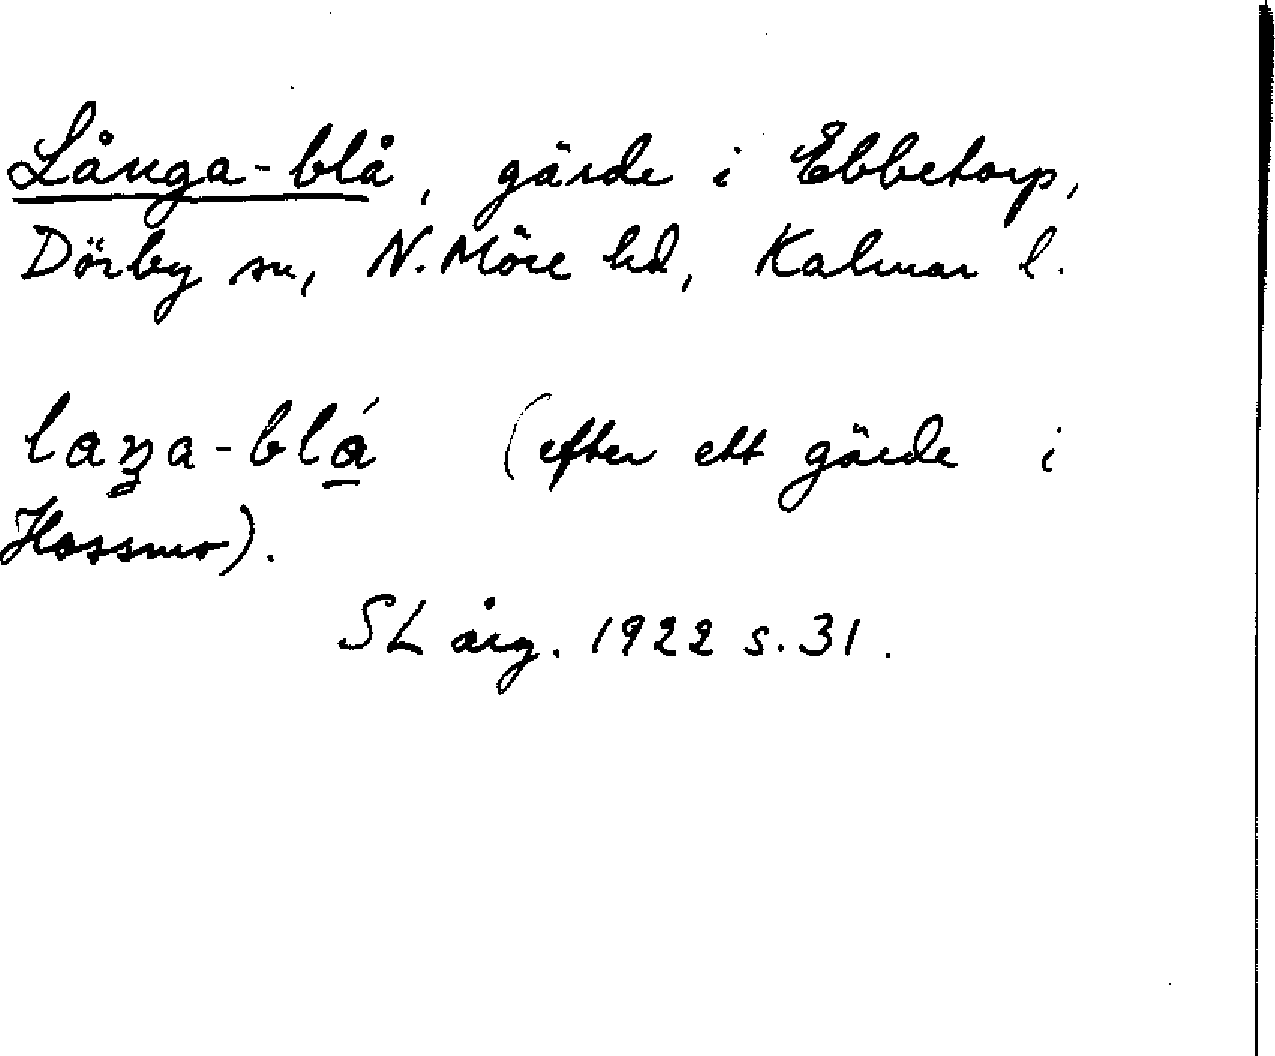 Långa-blå, gärde i Ebbetorp,
Dörby sn, N. Möre hd, Kalmar l.
laŋa-blá (efter ett gärde i
Hossmo).
SL årg. 1922 s. 31.